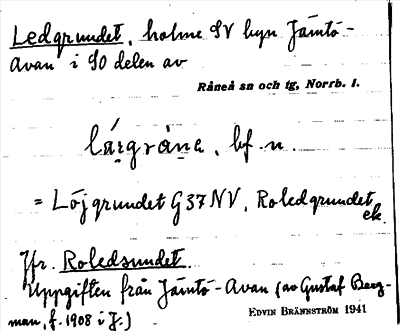 Ledgrundet, holme SV byn Jämtö-
Avan i SO delen av
Råneå sn och tg, Norrb. l.
bf. n.
= Löjgrundet G37NV, Roledgrundet ek.
Jfr. Roledsundet.
Uppgiften från Jämtö-Avan (av Gustaf Berg-
man, f. 1908 i J.)
EDVIN BRÄNNSTRÖM 1941